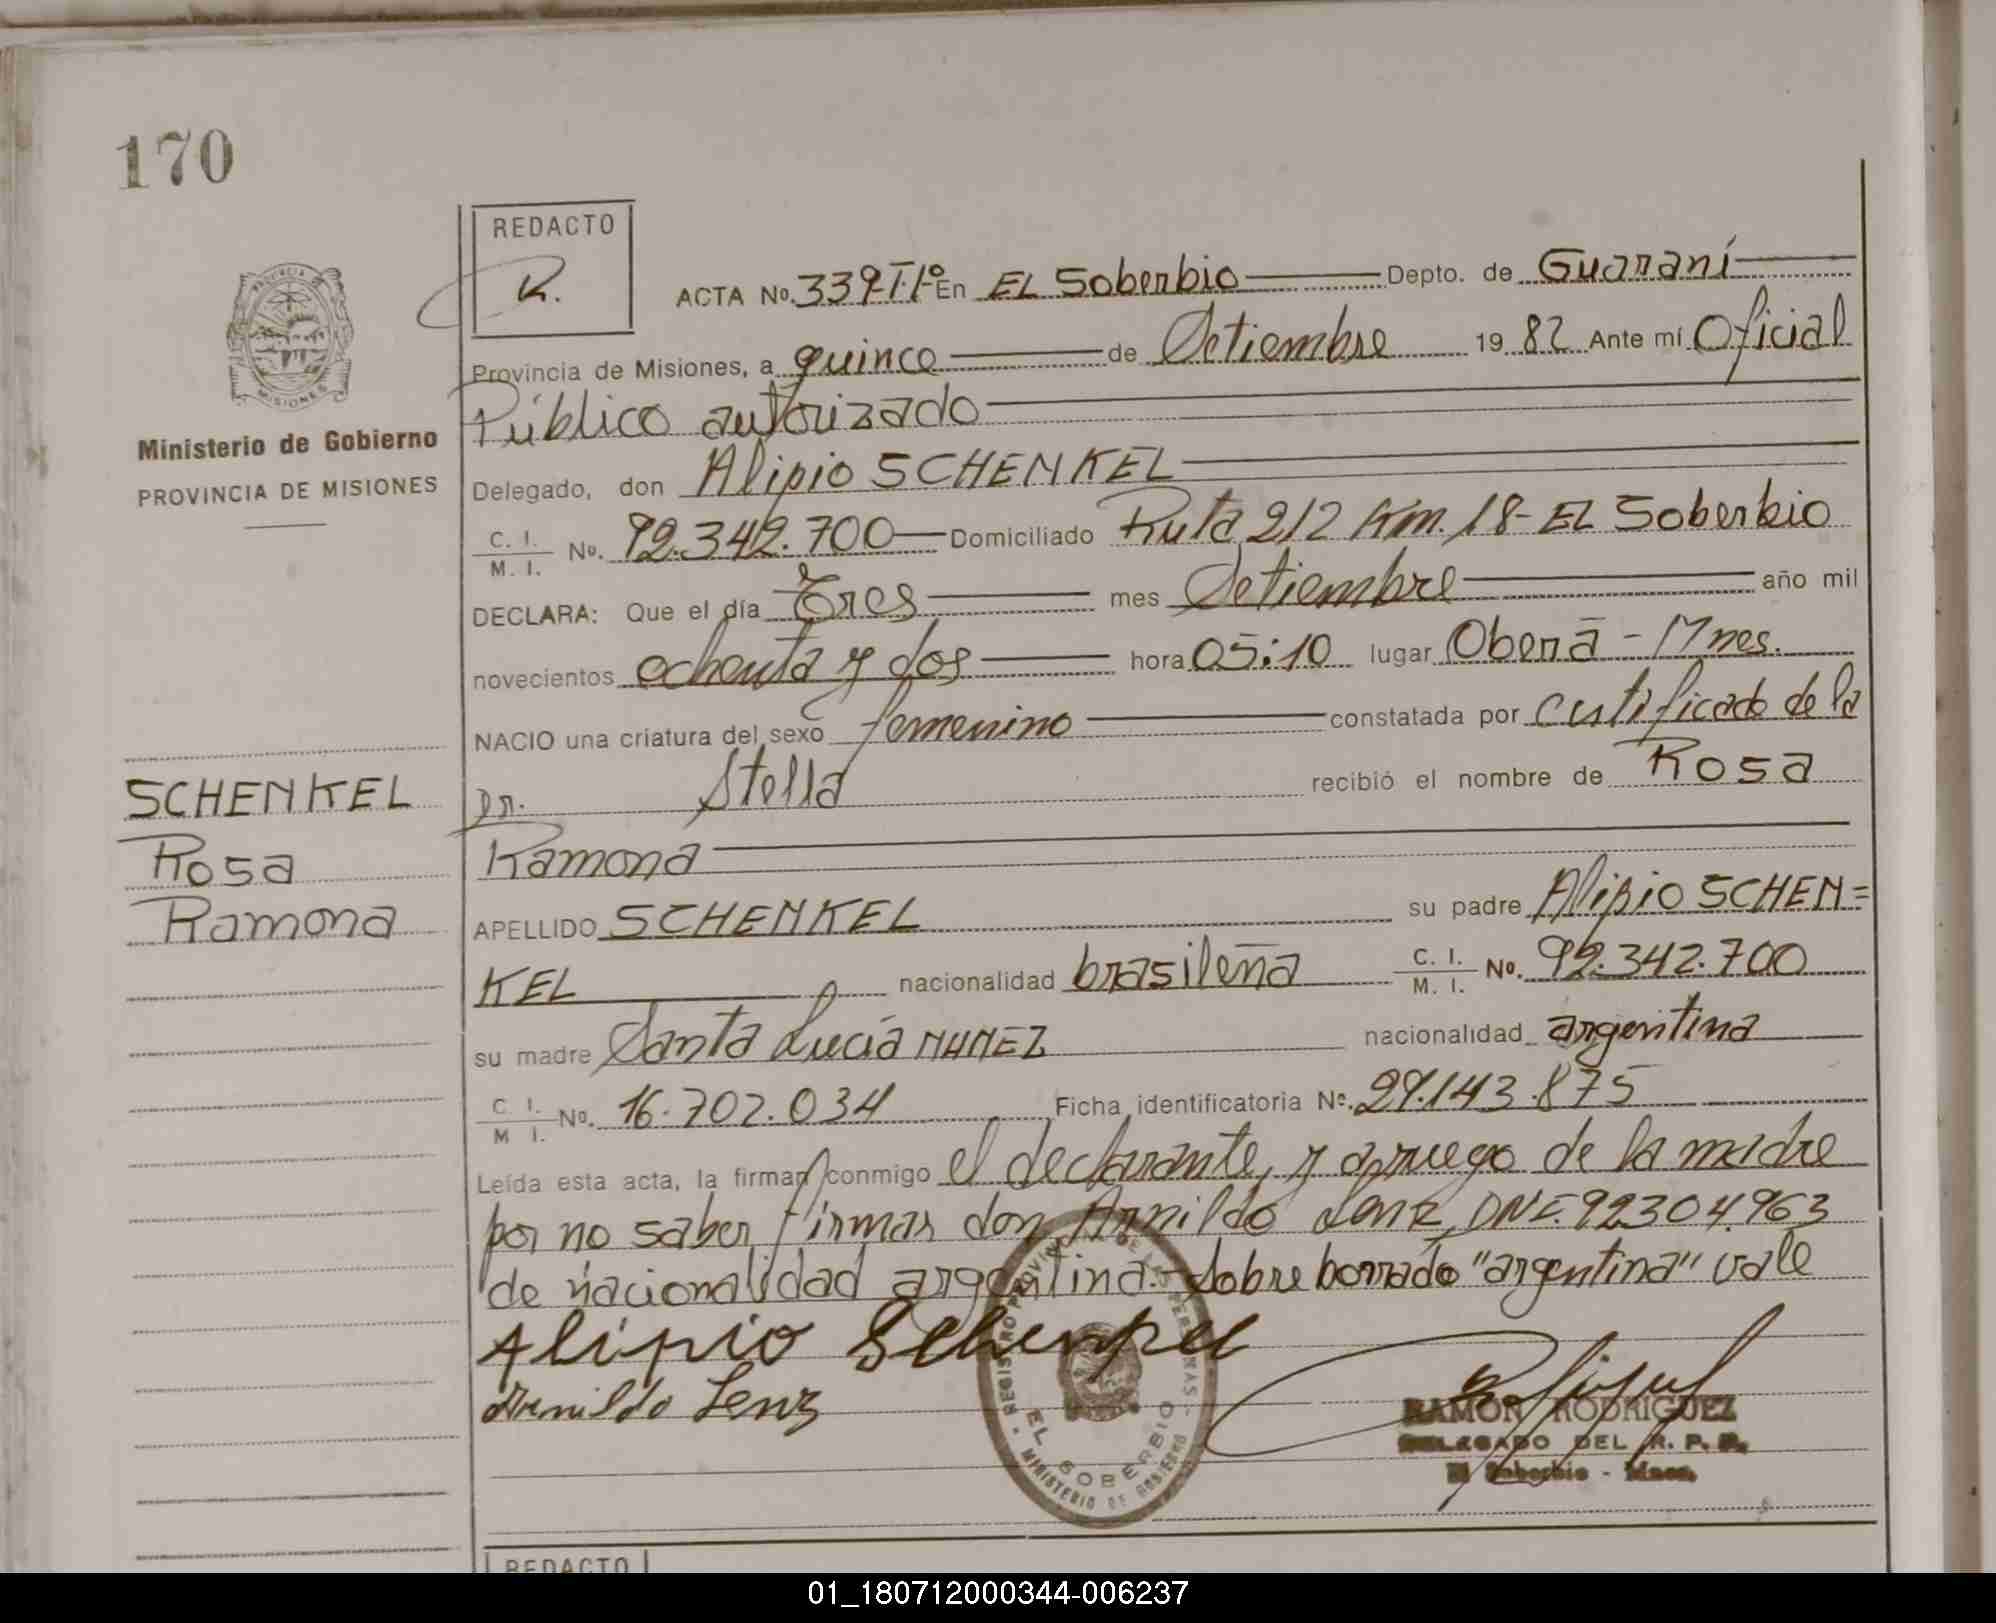 170
REDACTO
R.
ACTA No. 339 T.Iº En EL Soberbio Depto. de Guaraní
Provincia de Misiones, a quince de Setiembre 19 82 Ante mí Oficial
Público autorizado
Ministerio de Gobierno
PROVINCIA DE MISIONES
Delegado, don Alipio SCHENKEL
C. I. M. I. No. 92.342.700 Domiciliado Ruta 212 Km. 18- EL Soberbio
DECLARA: Que el día Tres mes Setiembre año mil
novecientos ochenta y dos hora 05:10 lugar Oberá - Mnes.
NACIO una criatura del sexo femenino constatada por certificado de la
Dr. Stella recibió el nombre de Rosa
Ramona
SCHENKEL
Rosa
Ramona
APELLIDO SCHENKEL su padre Alipio SCHEN=
KEL nacionalidad brasileña C. I. M. I. No. 92.342.700
su madre Santa Lucía NUNEZ nacionalidad argentina
C. I. M I. No. 16.702.034 Ficha identificatoria No. 29.143.875
Leída esta acta, la firman conmigo el declarante, y a pruego de la madre
por no saber firmar don Arnildo Lenz, DNI. 92304.963
de nacionalidad argentina.- Sobre borrado "argentina" vale
Alipio Schenkel
Arnildo Lenz
REGISTRO PROVINCIAL DE LAS PERSONAS
EL SOBERBIO
MINISTERIO DE GOBIERNO
RAMON RODRIGUEZ
DELEGADO DEL R. P. P.
El Soberbio - Mnes.
REDACTO
01_180712000344-006237